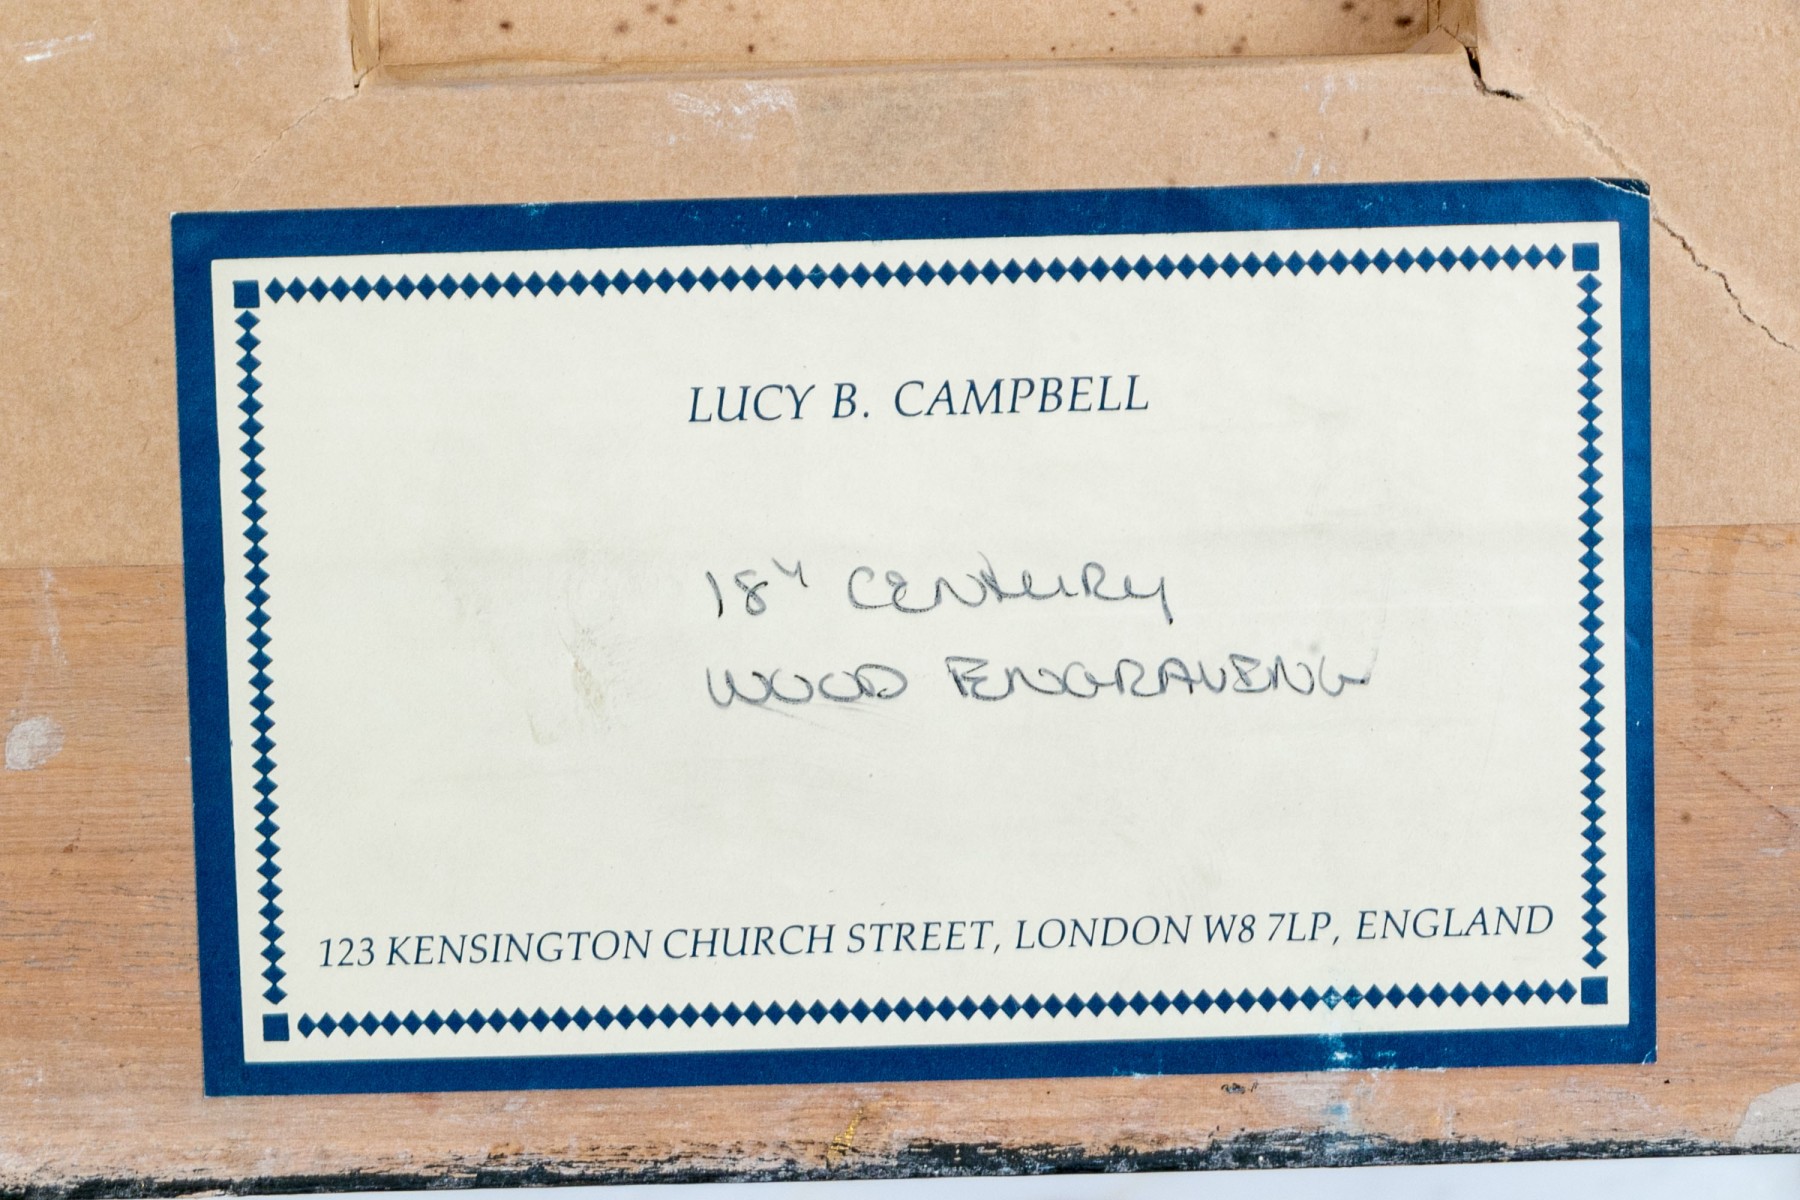 LUCY B. CAMPBELL
18y CENTURY
WOOD ENGRAVING
123 KENSINGTON CHURCH STREET, LONDON W8 7LP, ENGLAND